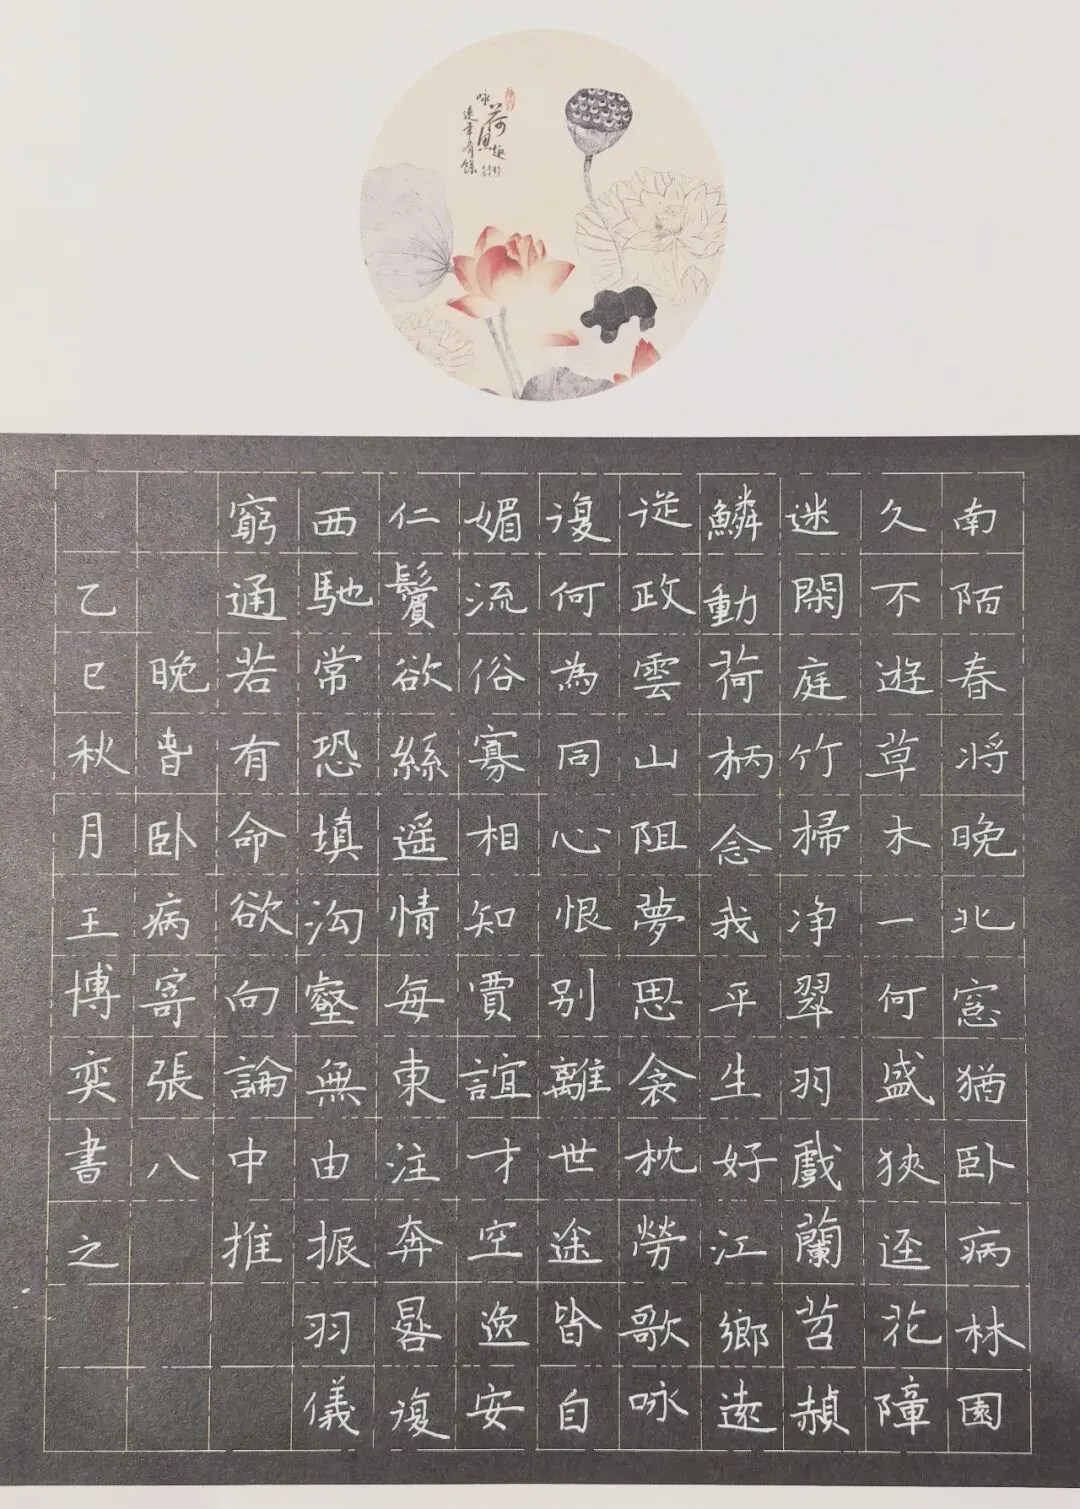 咏荷
連年有餘
南陌春将晚北窓猶卧病林園
久不遊草木一何盛狹迳花障
迷閑庭竹掃净翠羽戲蘭苕赬
鱗動荷柄念我平生好江鄉遠
從政雲山阻夢思衾枕勞歌咏
復何為同心恨别離世途皆自
媚流俗寡相知賈誼才空逸安
仁鬢欲絲遥情每東注奔晷復
西馳常恐填沟壑無由振羽儀
窮通若有命欲向論中推
晚旾卧病寄張八
乙巳秋月王博奕書之